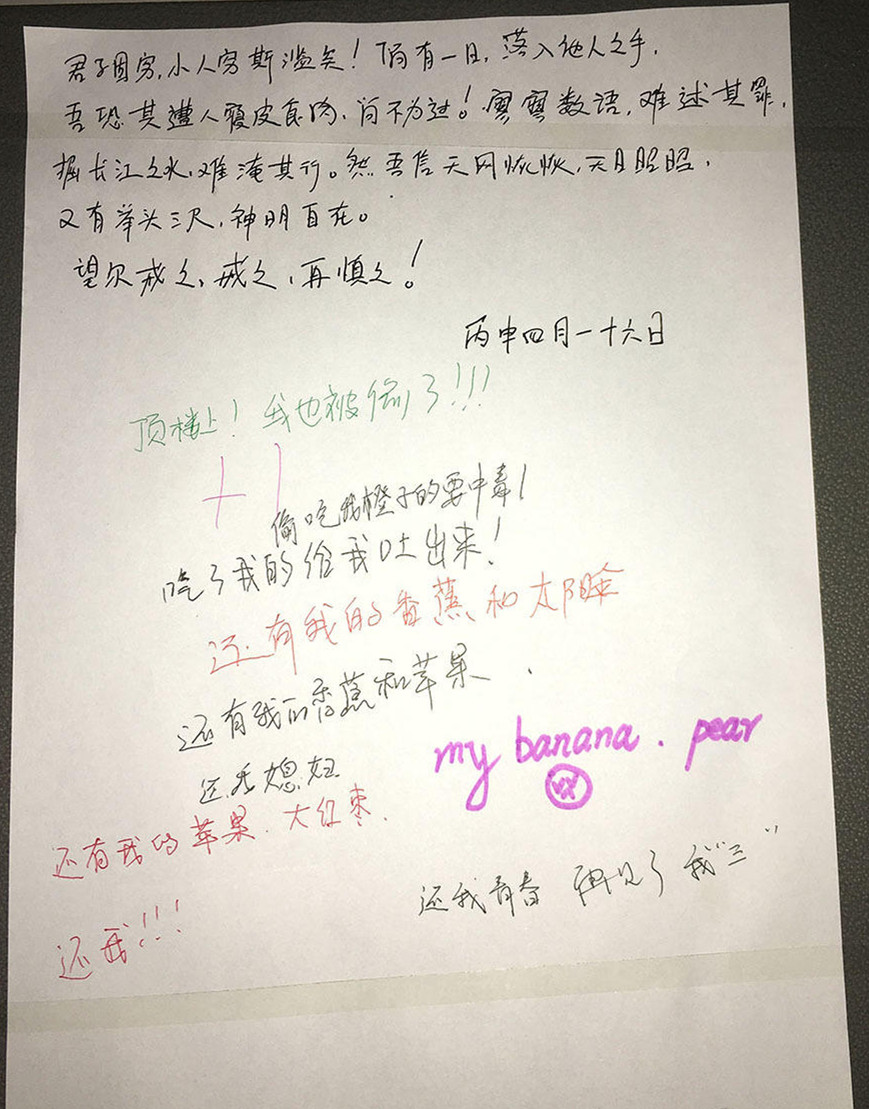 君子固穷,小人穷斯滥矣!倘有一日,落入他人之手,
吾恐其遭人寝皮食肉,尚不为过!寥寥数语,难述其罪,
掘长江之水,难淹其行。然吾信天网恢恢,天日昭昭,
又有举头三尺,神明自在。
望尔戒之,戒之,再慎之!
丙申四月一十六日
顶楼上!我也被偷了!!!
+1
偷吃我橙子的要中毒!
吃了我的给我吐出来!
还有我的香蕉和太阳伞
还有我的香蕉和苹果.
my banana. pear
还我媳妇
还有我的苹果.大红枣.
还我青春 再见了我“三”
还我!!!